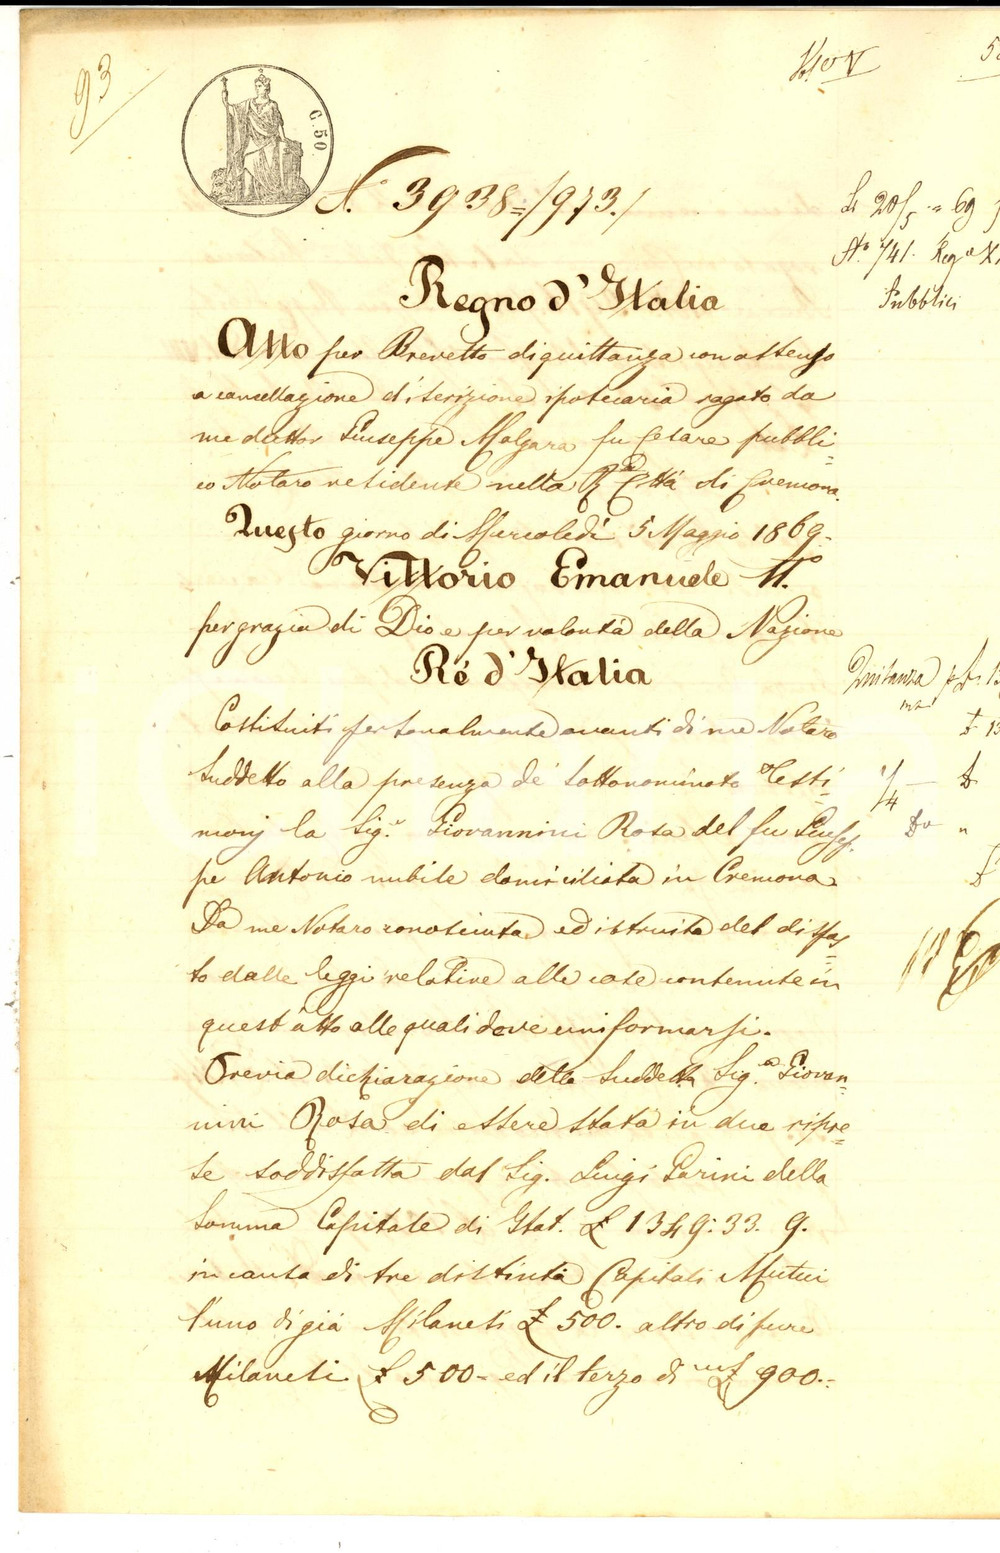 93
C. 50
N.° 3938=/973./
Regno d' Italia
Atto per Brevetto di quittanza con assenso
a cancellazione d'iscrizione ipotecaria rogato da
me dottor Giuseppe Malgara fu Cesare pubbli=
co Notaro residente nella R.a Città di Cremona.
Questo giorno di Mercoledì 5 Maggio 1869.
Vittorio Emanuele II.°
per grazia di Dio e per volontà della Nazione
Ré d' Italia
Costituiti personalmente avanti di me Notaro
suddetto alla presenza de' sottonominati Testi=
monj la Sig.a Giovannini Rosa del fu Giusep=
pe Antonio nubile domiciliata in Cremona.
Da me Notaro conosciuta ed istruita del dispos=
to dalle leggi relative alle cose contenute in
quest'atto alle quali deve uniformarsi.
Previa dichiarazione della suddetta Sig.a Giovan=
nini Rosa di essere stata in due ripre=
se soddisfatta dal Sig. Luigi Parini della
somma Capitale di Ital. £ 1349:33. 9.
in causa di tre distinti Capitali Mutui
l'uno di già Milanesi £ 500. altro di pure
Milanesi £ 500- ed il terzo di £ 900.=
Li 20/5 = 69
N.° 741. Reg.o
Pubblici
Quitanza
1/4